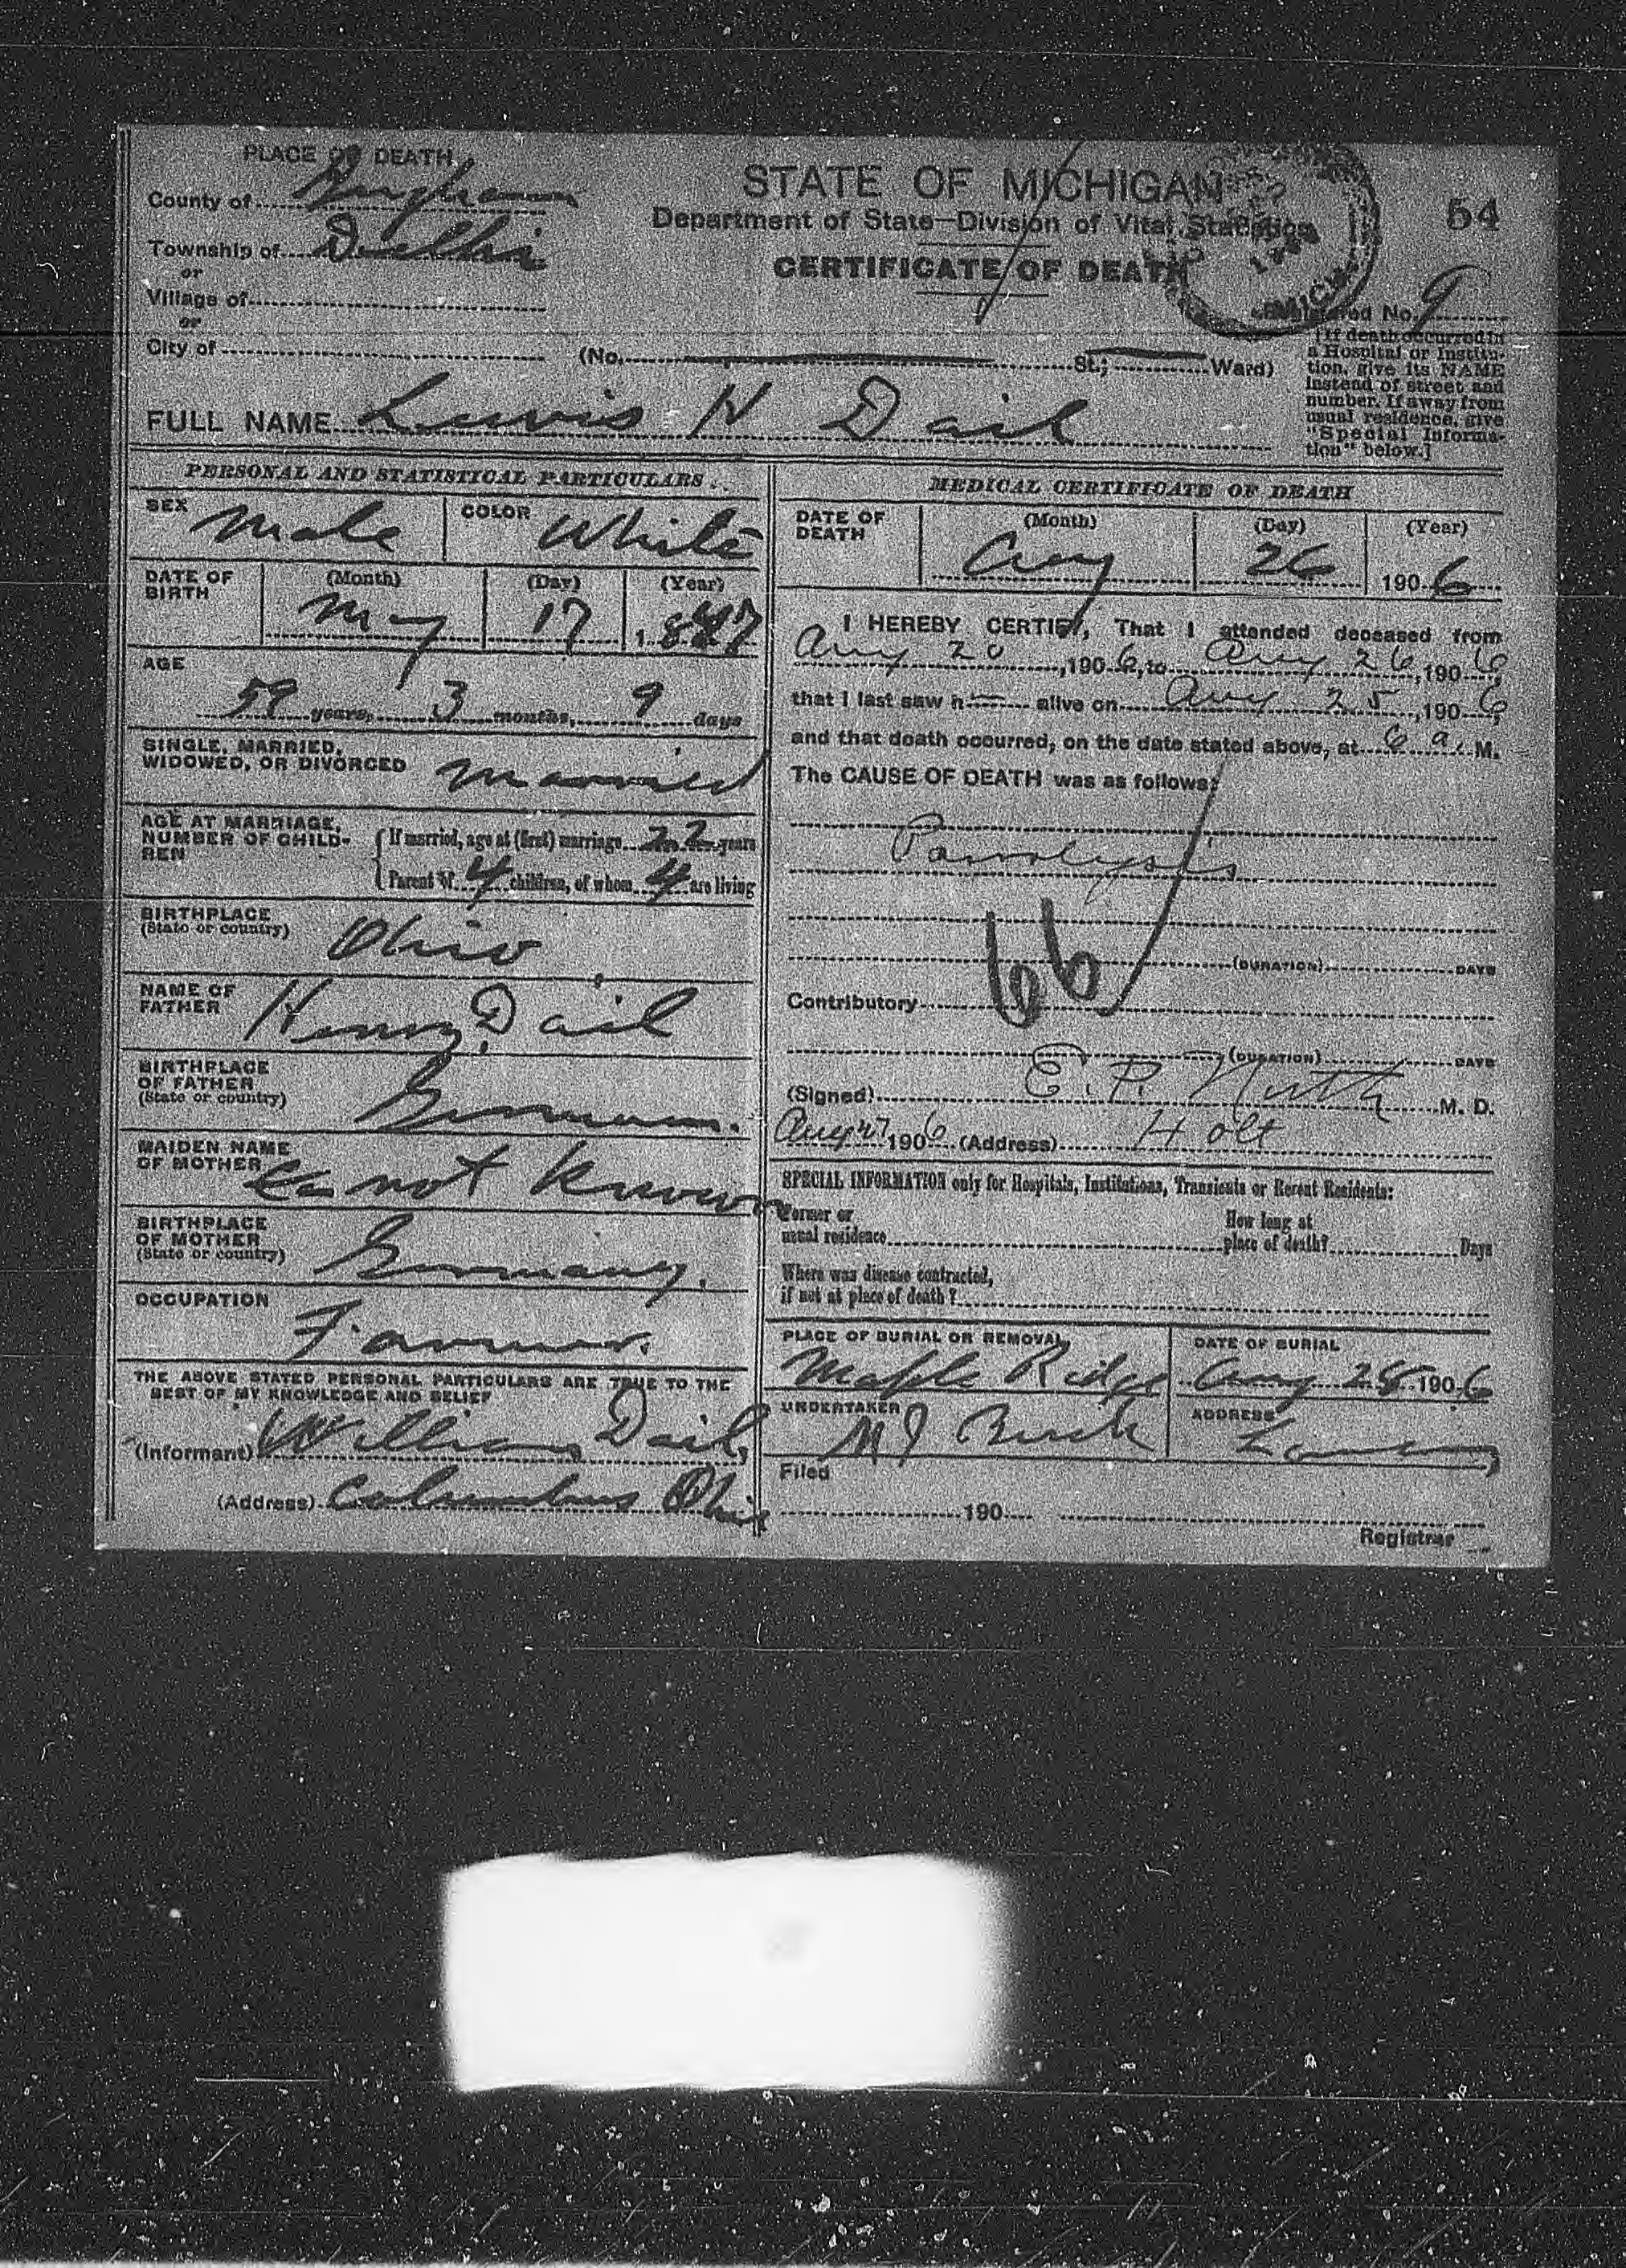 PLACE OF DEATH
County of Ingham
Township of Delhi
or
Village of
or
City of
STATE OF MICHIGAN
Department of State—Division of Vital Statistics
CERTIFICATE OF DEATH
MICH.
54
Registered No. 9
(No. St.; Ward)
[If death occurred in
a Hospital or Institu-
tion, give its NAME
instead of street and
number. If away from
usual residence, give
"Special Informa-
tion" below.]
FULL NAME Lewis H Dail
PERSONAL AND STATISTICAL PARTICULARS
SEX Male
COLOR White
DATE OF
BIRTH
(Month) (Day) (Year)
May 17 1847
AGE
59 years, 3 months, 9 days
SINGLE, MARRIED,
WIDOWED, OR DIVORCED Married
AGE AT MARRIAGE,
NUMBER OF CHILD-
REN
If married, age at (first) marriage 22 years
Parent of 4 children, of whom 4 are living
BIRTHPLACE
(State or country)
Ohio
NAME OF
FATHER
Henry Dail
BIRTHPLACE
OF FATHER
(State or country)
German.
MAIDEN NAME
OF MOTHER
not known
BIRTHPLACE
OF MOTHER
(State or country)
Germany.
OCCUPATION
Farmer.
THE ABOVE STATED PERSONAL PARTICULARS ARE TRUE TO THE
BEST OF MY KNOWLEDGE AND BELIEF
(Informant) William Dail
(Address) Columbus Ohio
MEDICAL CERTIFICATE OF DEATH
DATE OF
DEATH
(Month) (Day) (Year)
Aug 26 1906
I HEREBY CERTIFY, That I attended deceased from
Aug 20, 1906, to Aug 26, 1906,
that I last saw h alive on Aug 25, 1906,
and that death occurred, on the date stated above, at 6 a. M.
The CAUSE OF DEATH was as follows:
Paralysis
66
(DURATION) DAYS
Contributory
(DURATION) DAYS
(Signed) E. P. North M. D.
Aug 27 1906 (Address) Holt
SPECIAL INFORMATION only for Hospitals, Institutions, Transients or Recent Residents:
Former or
usual residence
How long at
place of death? Days
Where was disease contracted,
if not at place of death?
PLACE OF BURIAL OR REMOVAL
Maple Ridge
DATE OF BURIAL
Aug 28 1906
UNDERTAKER
M J Buck
ADDRESS
Lansing
Filed
190
Registrar